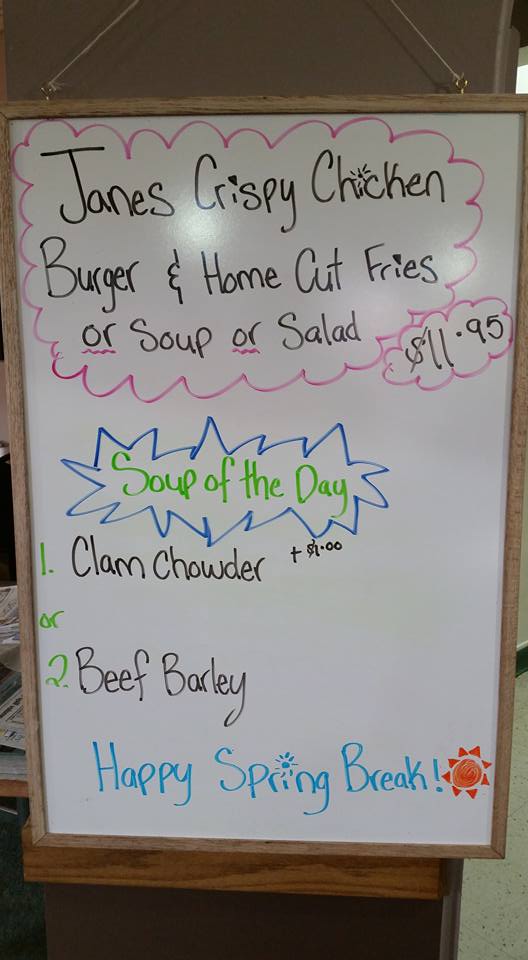 Janes Crispy Chicken
Burger & Home Cut Fries
or Soup or Salad
$11.95
Soup of the Day
1. Clam Chowder + $1.00
or
2. Beef Barley
Happy Spring Break!